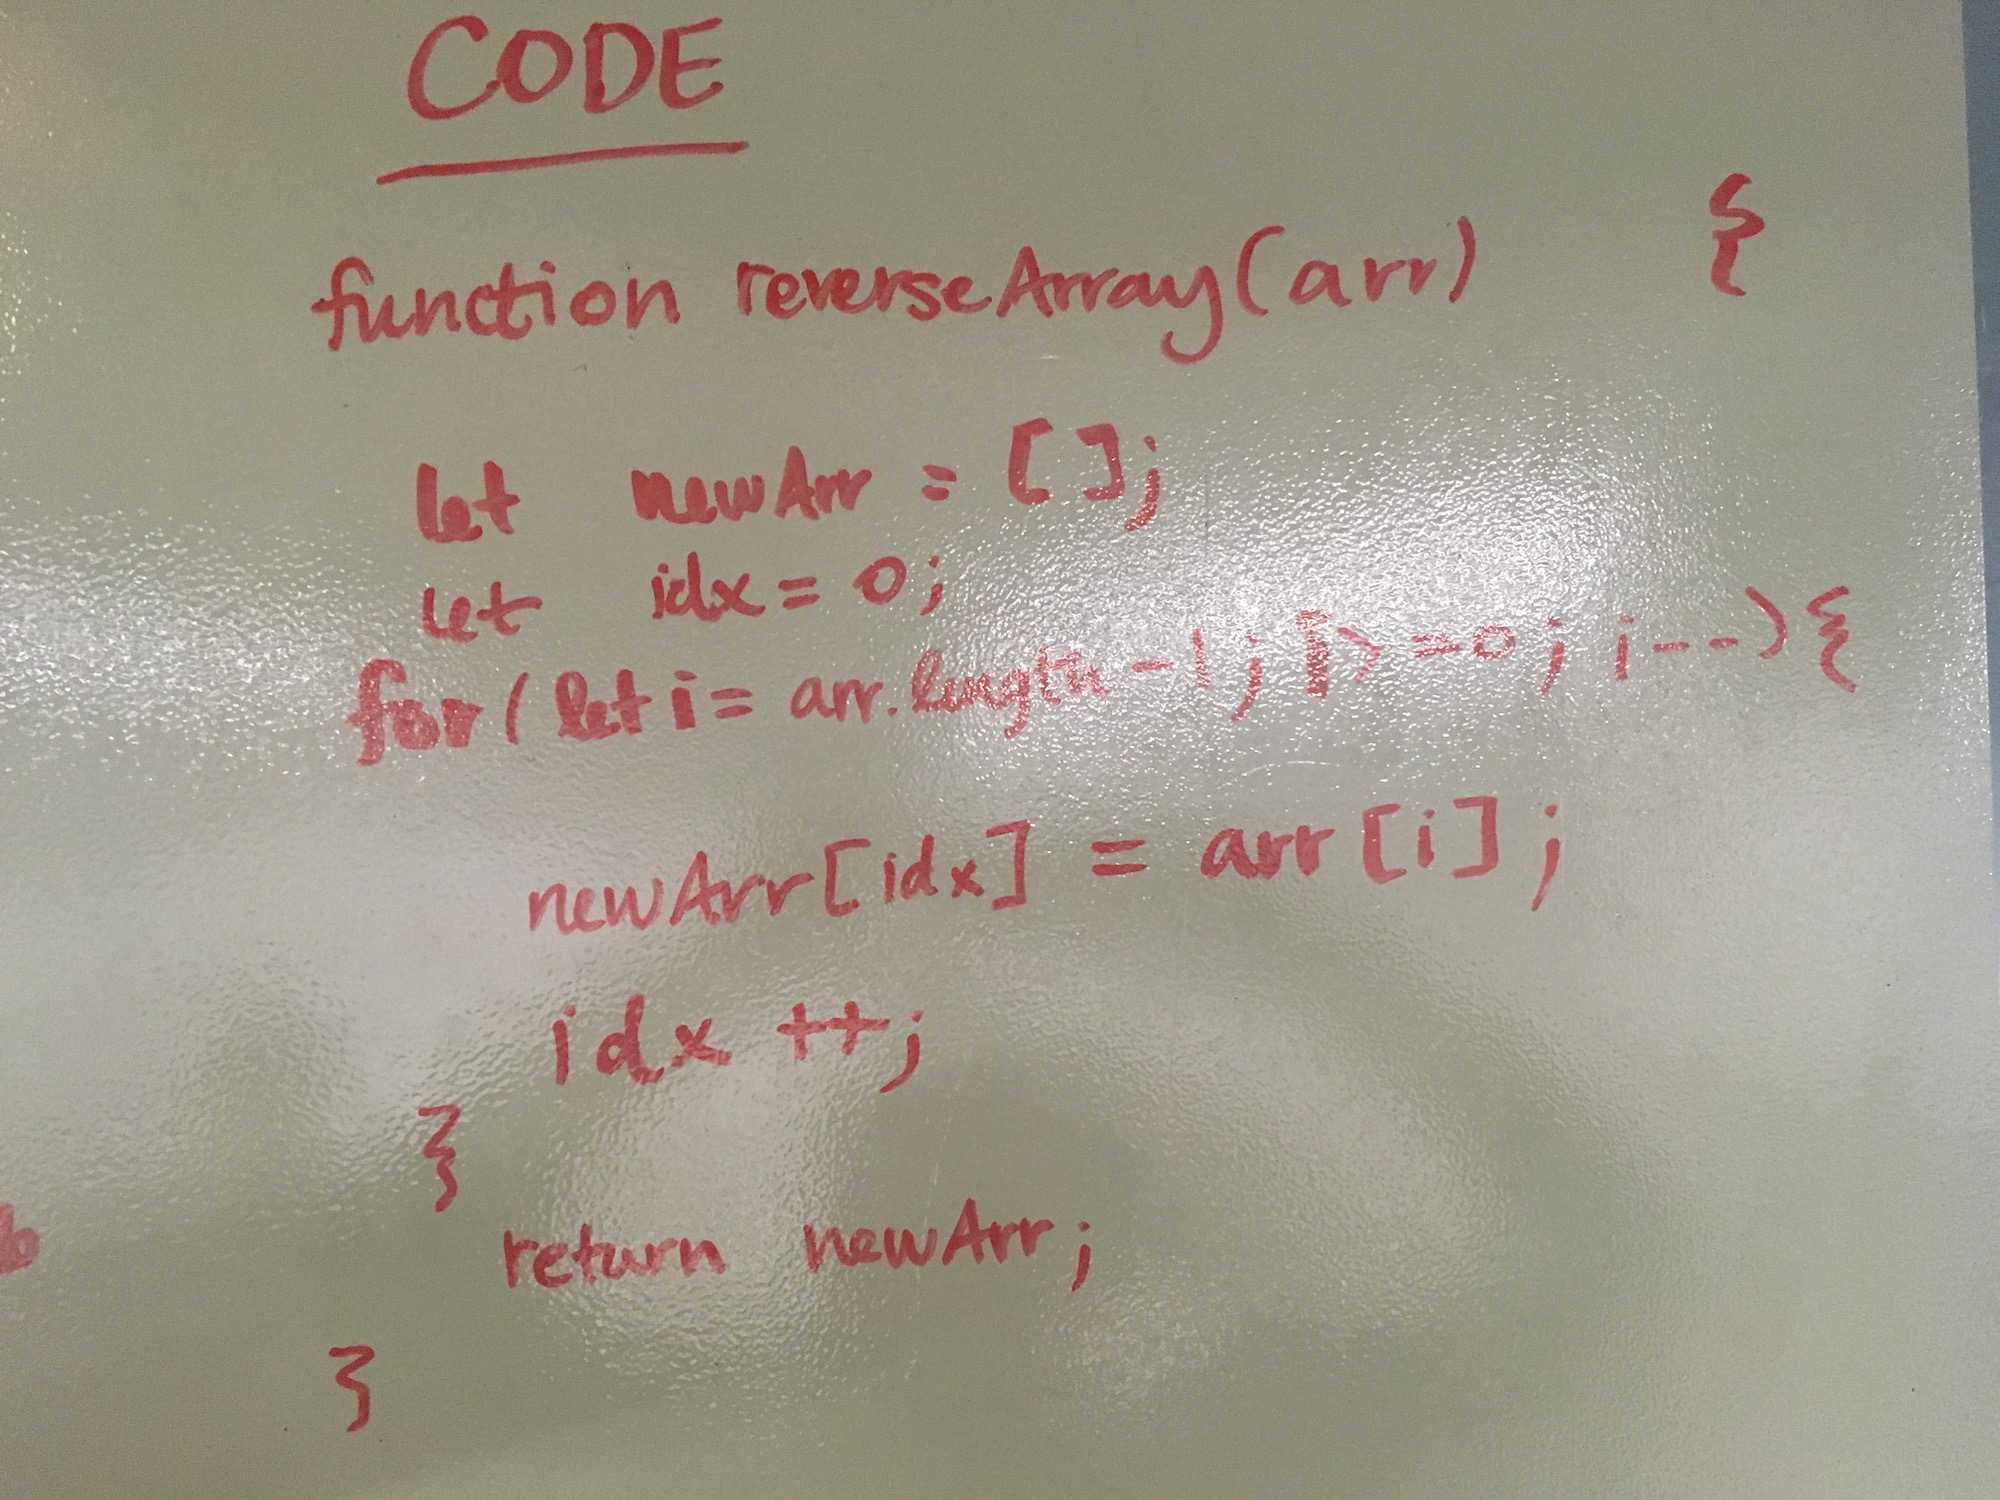 CODE
function reverseArray(arr) {
let newArr = [];
let idx = 0;
for(let i= arr.length-1; i>=0; i--){
newArr[idx] = arr[i];
idx ++;
}
return newArr;
}